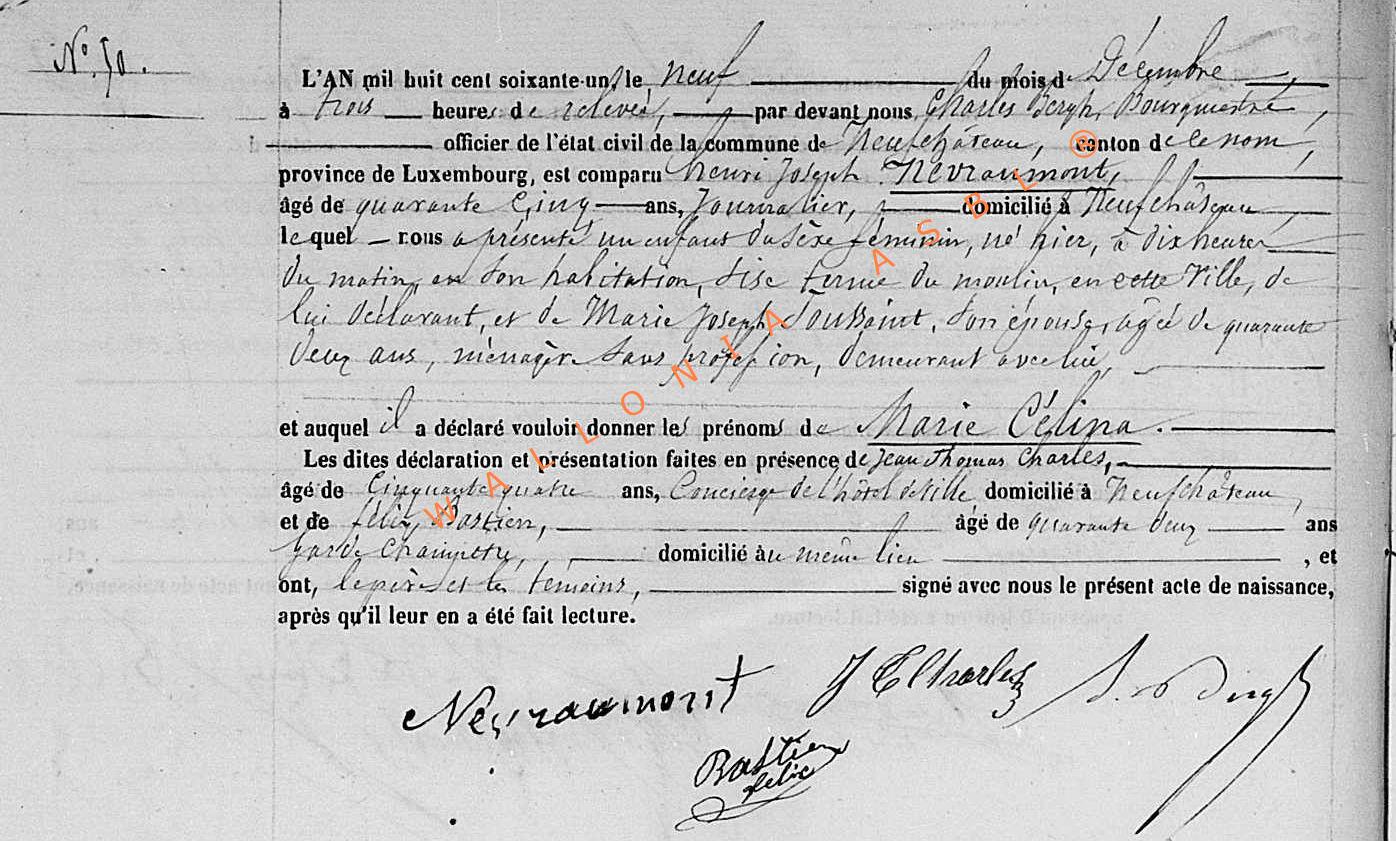 N° 50.
L'AN mil huit cent soixante-un, le neuf du mois de Décembre,
à trois heures de relevée, par devant nous Charles Bergh, Bourgmestre,
officier de l'état civil de la commune de Neufchâteau, canton de ce nom,
province de Luxembourg, est comparu henri Joseph Nevraumont,
âgé de quarante Cinq ans, Journalier, domicilié à Neufchâteau,
lequel nous a présenté un enfant du sèxe féminin, né hier, à dix heures
du matin, en son habitation, sise ferme du moulin, en cette Ville, de
lui déclarant, et de Marie Joseph Toussaint, son épouse, agée de quarante
deux ans, ménagère sans profession, demeurant avec lui,
et auquel il a déclaré vouloir donner les prénoms de Marie Célina.
Les dites déclaration et présentation faites en présence de Jean Thomas Charles,
âgé de Cinquante quatre ans, Concierge de l'hôtel de Ville domicilié à Neufchâteau,
et de félix Bastien, âgé de quarante deux ans
garde Champêtre, domicilié au même lieu , et
ont, le père et les temoins, signé avec nous le présent acte de naissance,
après qu'il leur en a été fait lecture.
Nevraumont J T Charles
Bastien
félix
WALLONIA ASBL ®